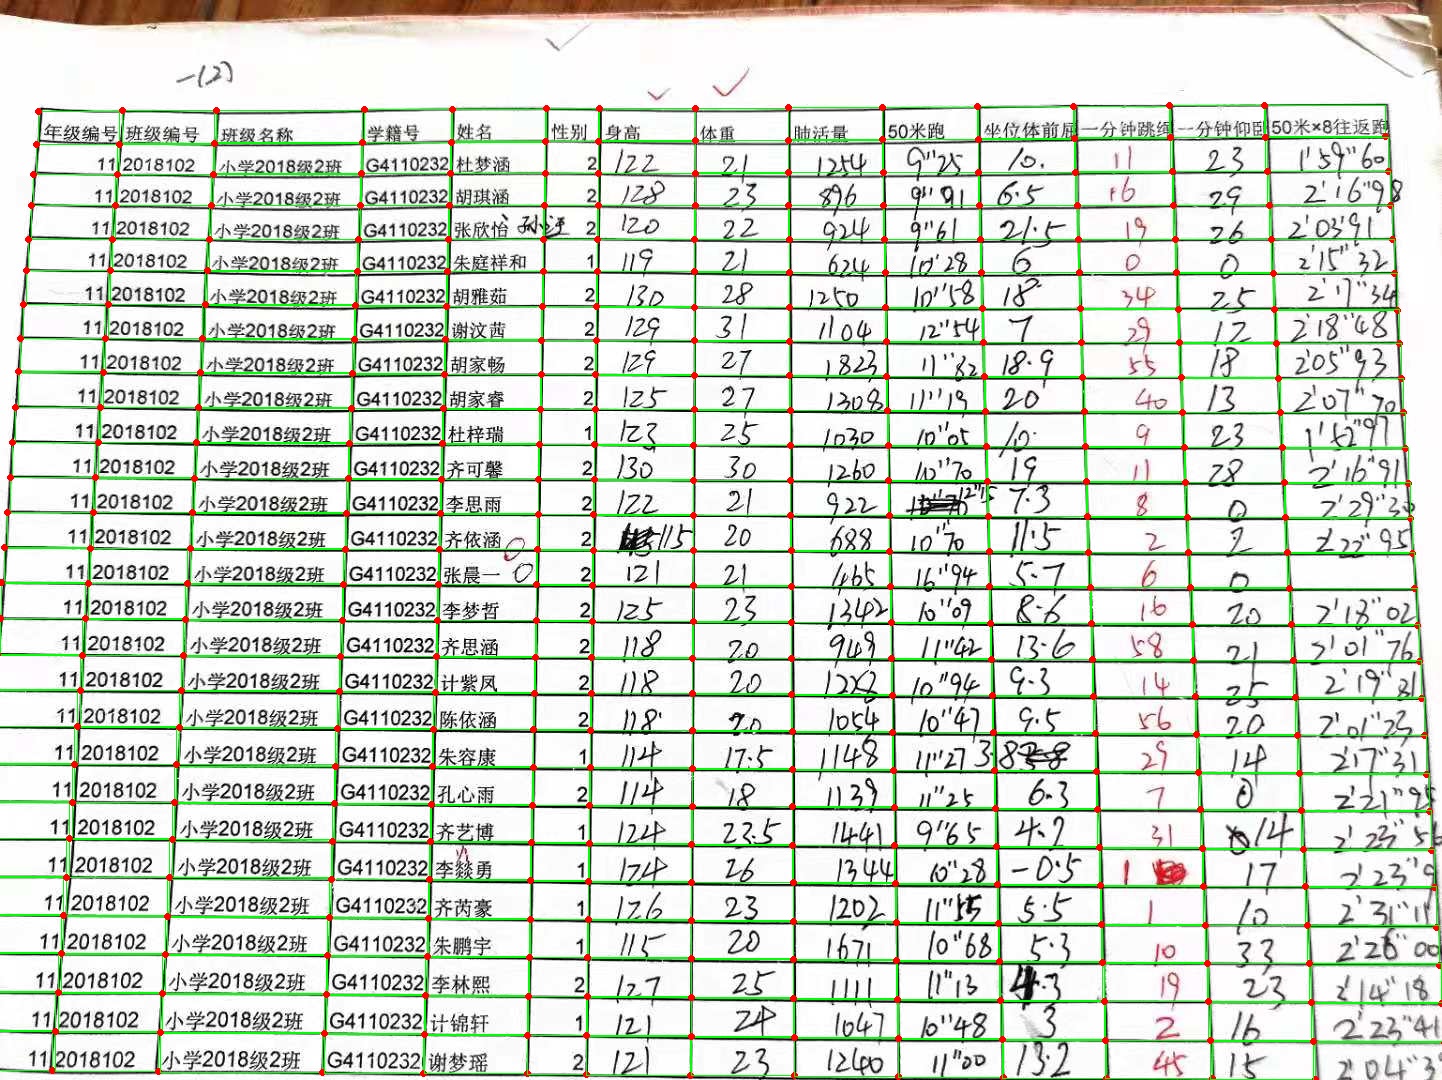 一(2)
年级编号 班级编号 班级名称 学籍号 姓名 性别 身高 体重 肺活量 50米跑 坐位体前屈 一分钟跳绳 一分钟仰卧 50米×8往返跑
11 2018102 小学2018级2班 G4110232 杜梦涵 2 122 21 1254 9"25 10. 11 23 1'59"60
11 2018102 小学2018级2班 G4110232 胡琪涵 2 128 23 896 9"91 6.5 16 29 2'16"98
11 2018102 小学2018级2班 G4110232 张欣怡 2 120 22 924 9"61 21.5 19 26 2'03'91
11 2018102 小学2018级2班 G4110232 朱庭祥和 1 119 21 624 10'28 6 0 0 2'15"32
11 2018102 小学2018级2班 G4110232 胡雅茹 2 130 28 1250 10"58 18 34 25 2'17"34
11 2018102 小学2018级2班 G4110232 谢汶茜 2 129 31 1104 12"54 7 29 12 2'18"48
11 2018102 小学2018级2班 G4110232 胡家畅 2 129 27 1823 11"82 18.9 55 18 2'05"93
11 2018102 小学2018级2班 G4110232 胡家睿 2 125 27 1308 11"19 20 40 13 2'07"70
11 2018102 小学2018级2班 G4110232 杜梓瑞 1 123 25 1030 10"05 10. 9 23 1'52"97
11 2018102 小学2018级2班 G4110232 齐可馨 2 130 30 1260 10"70 19 11 28 2'16"91
11 2018102 小学2018级2班 G4110232 李思雨 2 122 21 922 12"15 7.3 8 0 2'29"30
11 2018102 小学2018级2班 G4110232 齐依涵 2 115 20 688 10"70 11.5 2 2 2'22"95
11 2018102 小学2018级2班 G4110232 张晨一 2 121 21 465 16"94 5.7 6 0
11 2018102 小学2018级2班 G4110232 李梦哲 2 125 23 1342 10"09 8.6 16 20 2'18"02
11 2018102 小学2018级2班 G4110232 齐思涵 2 118 20 949 11"42 13.6 58 21 2'01"76
11 2018102 小学2018级2班 G4110232 计紫凤 2 118 20 10"94 9.3 14 25 2'19"31
11 2018102 小学2018级2班 G4110232 陈依涵 2 118 20 1054 10"47 9.5 56 20 2'01"23
11 2018102 小学2018级2班 G4110232 朱容康 1 114 17.5 1148 11"27 3.8 29 14 2'17"31
11 2018102 小学2018级2班 G4110232 孔心雨 2 114 18 1139 11"25 6.3 7 0 2'21"95
11 2018102 小学2018级2班 G4110232 齐艺博 1 124 23.5 1441 9"65 4.7 31 14 2'23"56
11 2018102 小学2018级2班 G4110232 李燚勇 1 124 26 1344 10"28 -0.5 1 17 2'23"9
11 2018102 小学2018级2班 G4110232 齐芮豪 1 126 23 1202 11"55 5.5 1 10 2'31"11
11 2018102 小学2018级2班 G4110232 朱鹏宇 1 115 20 1671 10"68 5.3 10 33 2'26"00
11 2018102 小学2018级2班 G4110232 李林熙 2 127 25 1111 11"13 4.3 19 23 2'14"18
11 2018102 小学2018级2班 G4110232 计锦轩 1 121 24 1047 10"48 3 2 16 2'23"41
11 2018102 小学2018级2班 G4110232 谢梦瑶 2 121 23 1240 11"00 13.2 45 15 2'04"3